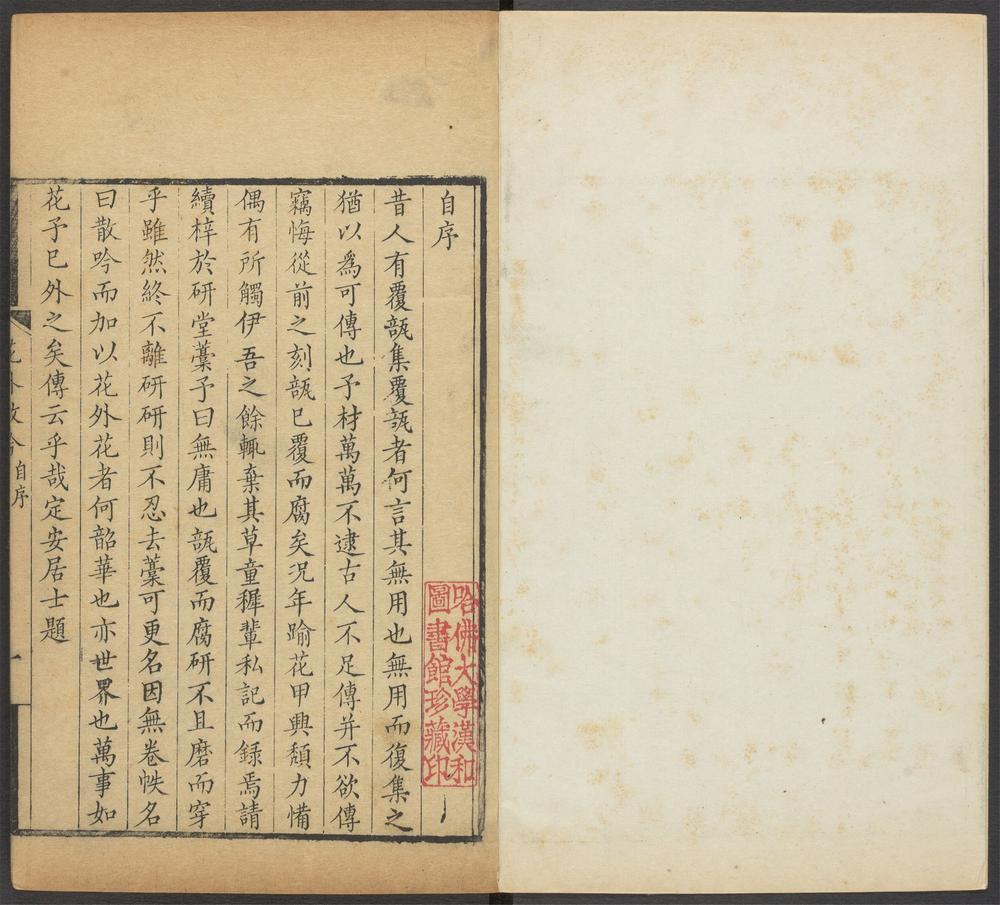 自序
昔人有覆瓿集覆瓿者何言其無用也無用而復集之
猶以爲可傳也予材萬萬不逮古人不足傳并不欲傳
竊悔從前之刻瓿巳覆而腐矣況年踰花甲興頽力憊
偶有所觸伊吾之餘輒棄其草童穉輩私記而錄焉請
續梓於研堂藁予曰無庸也瓿覆而腐研不且磨而穿
乎雖然終不離研研則不忍去藁可更名因無卷帙名
曰散吟而加以花外花者何韶華也亦世界也萬事如
花予巳外之矣傳云乎哉定安居士題
花外散吟 自序 一
哈佛大學漢和
圖書館珍藏印